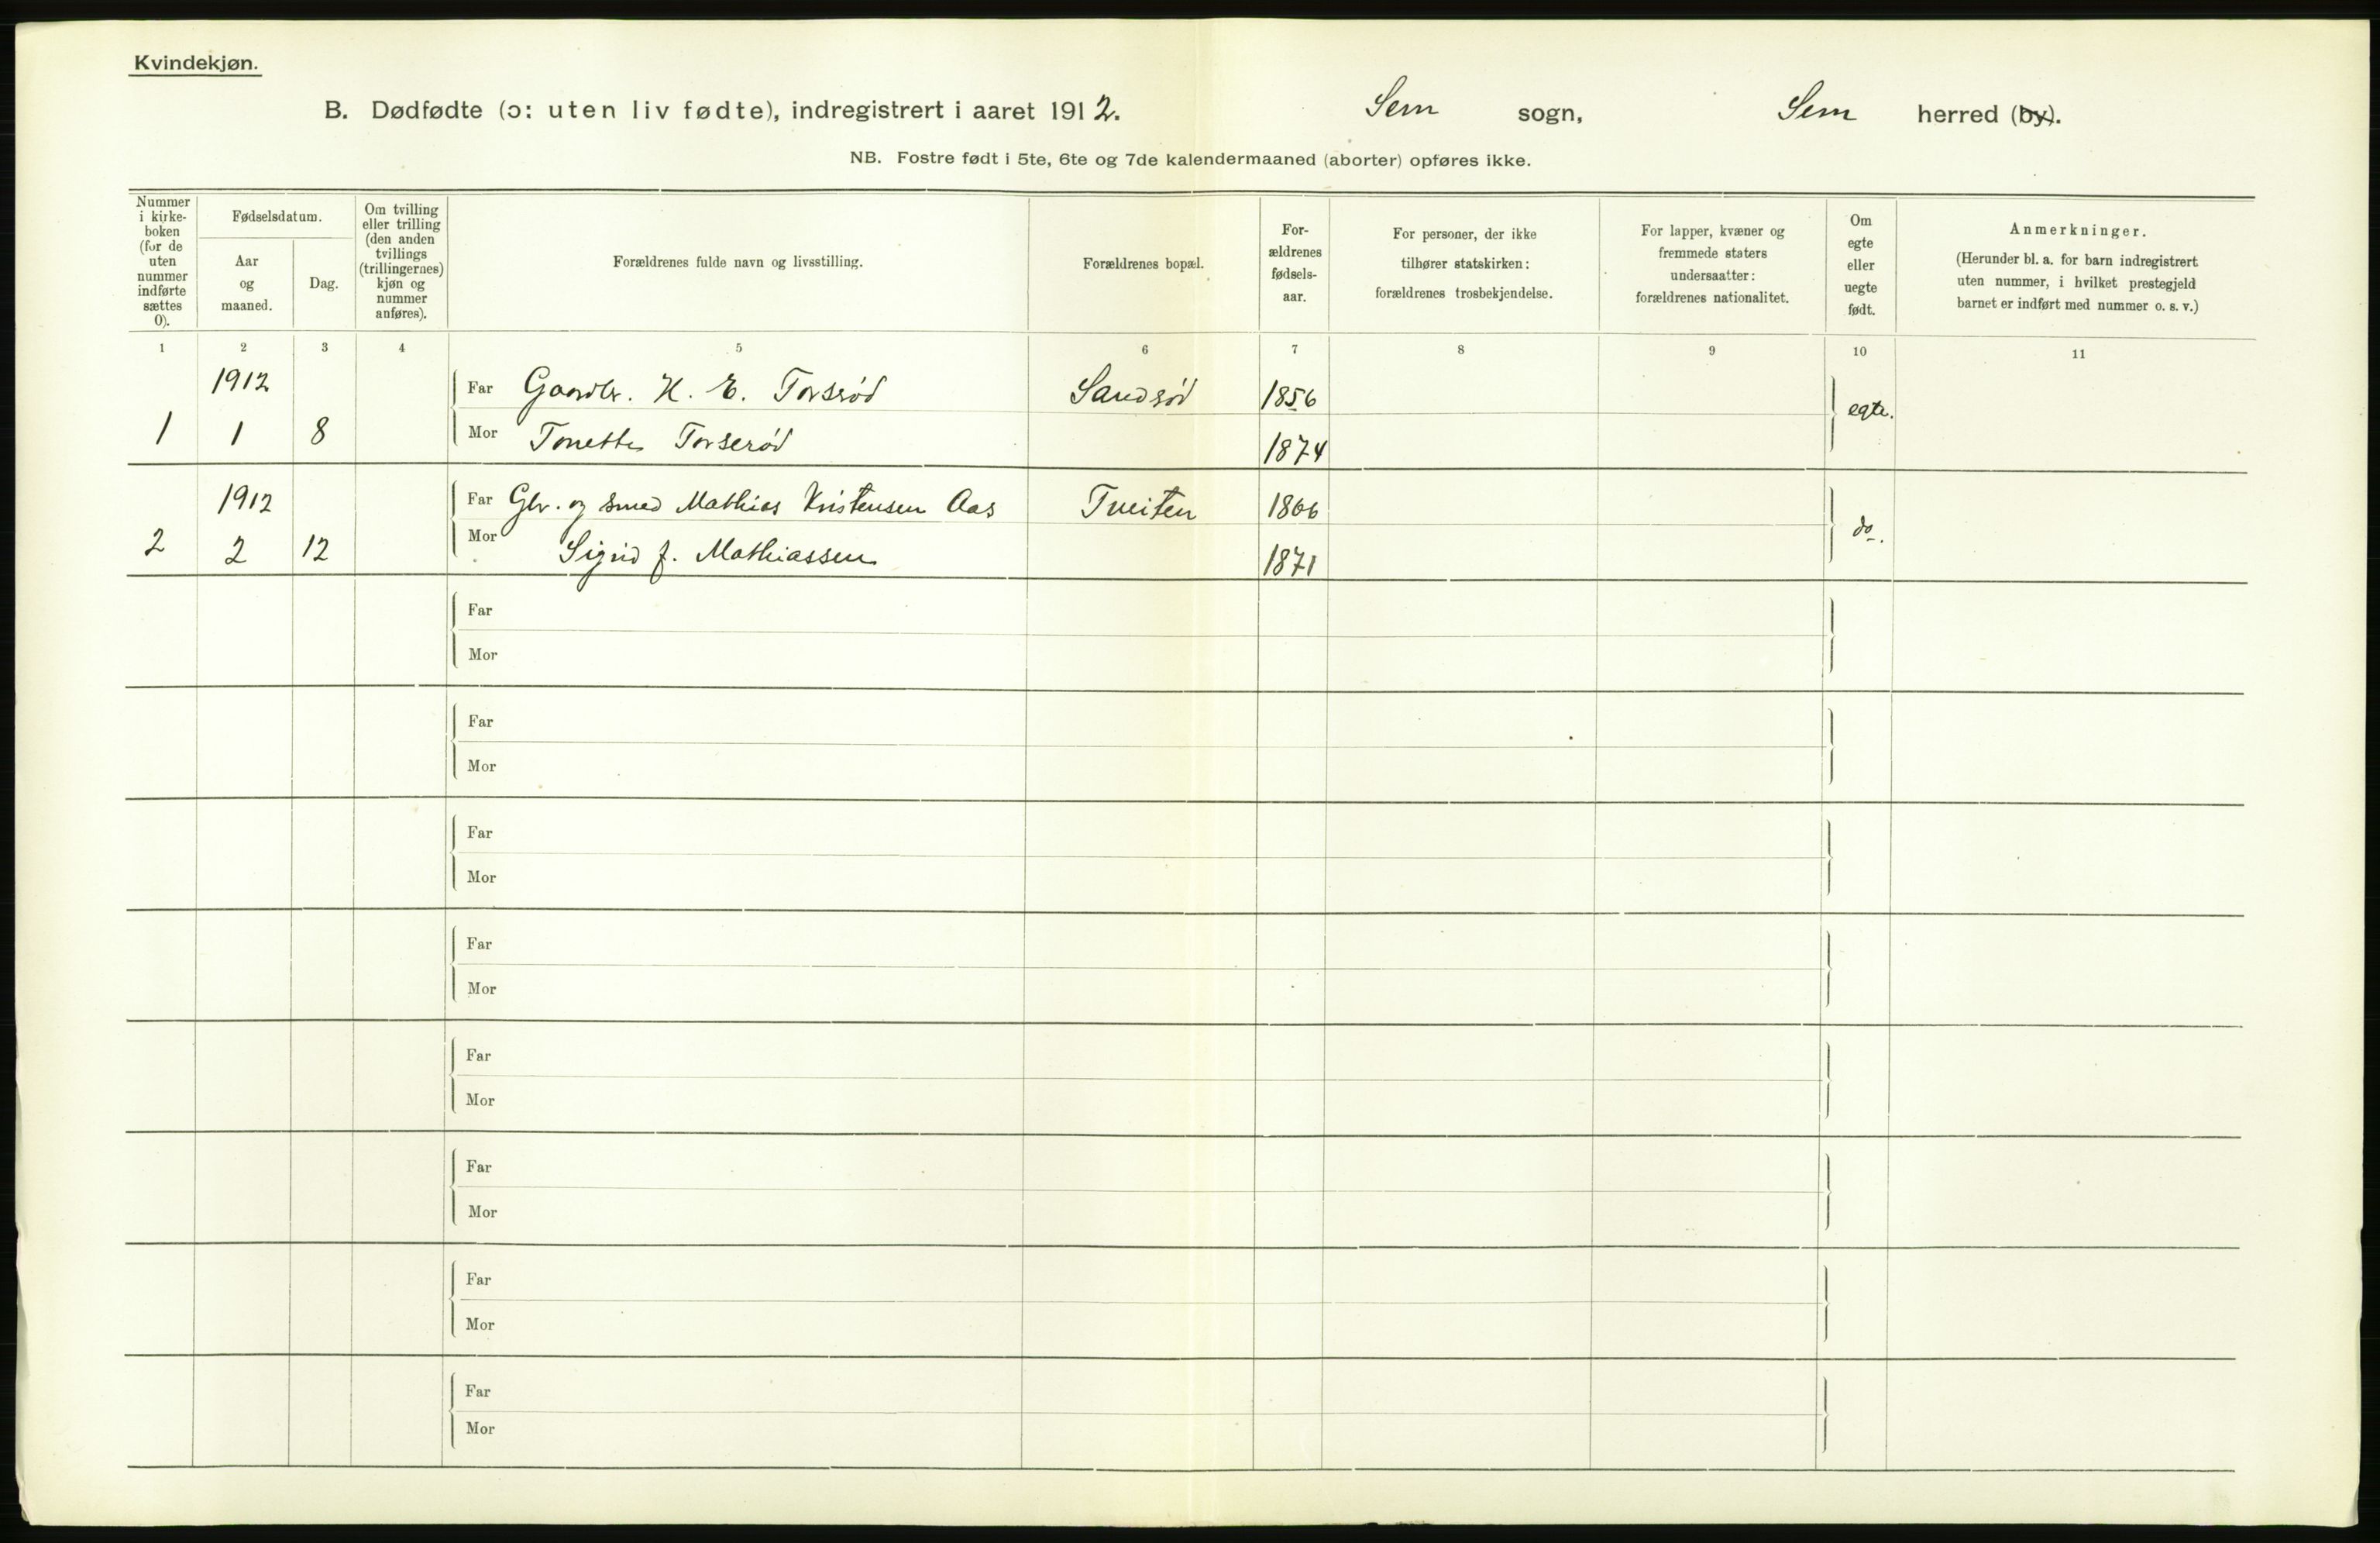 Kvindekjøn.
B. Dødfødte (ɔ: uten liv fødte), indregistrert i aaret 1912. Sem sogn, Sem herred (by).
NB. Fostre født i 5te, 6te og 7de kalendermaaned (aborter) opføres ikke.
Nummer
i kirke-
boken
(for de
uten
nummer
indførte
sættes
0).
Fødselsdatum.
Aar
og
maaned.
Dag.
Om tvilling
eller trilling
(den anden
tvillings
(trillingernes)
kjøn og
nummer
anføres).
Forældrenes fulde navn og livsstilling.
Forældrenes bopæl.
For-
ældrenes
fødsels-
aar.
For personer, der ikke
tilhører statskirken:
forældrenes trosbekjendelse.
For lapper, kvæner og
fremmede staters
undersaatter:
forældrenes nationalitet.
Om
egte
eller
uegte
født.
Anmerkninger.
(Herunder bl. a. for barn indregistrert
uten nummer, i hvilket prestegjeld
barnet er indført med nummer o. s. v.)
1 2 3 4 5 6 7 8 9 10 11
1912 Far Gaardbr. H. E. Torserød Sandsrød 1856 egte.
1 1 8 Mor Tonette Torserød 1874
1912 Far Gbr. og smed Mathias Kristensen Aas Tveiten 1866 do.
2 2 12 Mor Sigrid f. Mathiassen 1871
Far
Mor
Far
Mor
Far
Mor
Far
Mor
Far
Mor
Far
Mor
Far
Mor
Far
Mor